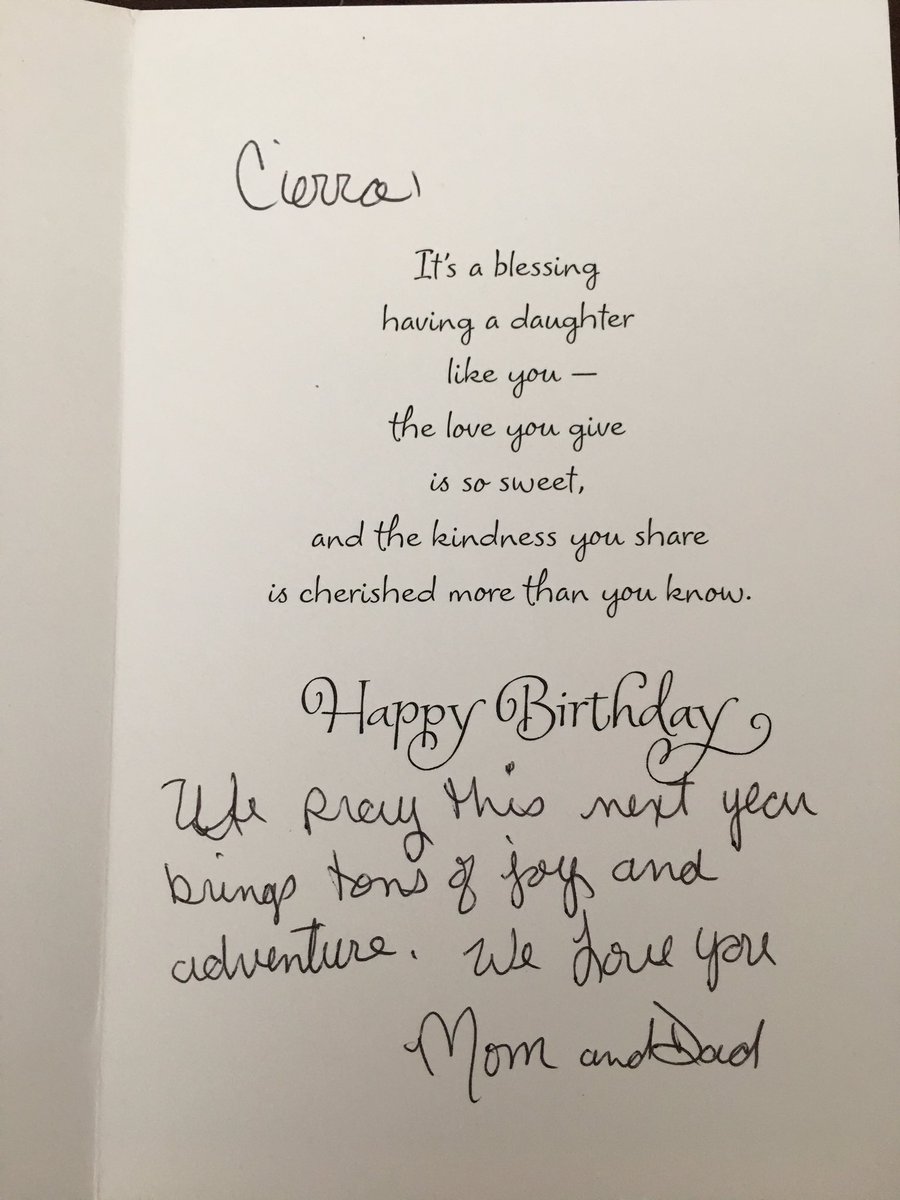 Cierra,
It's a blessing
having a daughter
like you —
the love you give
is so sweet,
and the kindness you share
is cherished more than you know.
Happy Birthday
We pray this next year
brings tons of joy and
adventure. We Love you
Mom and Dad